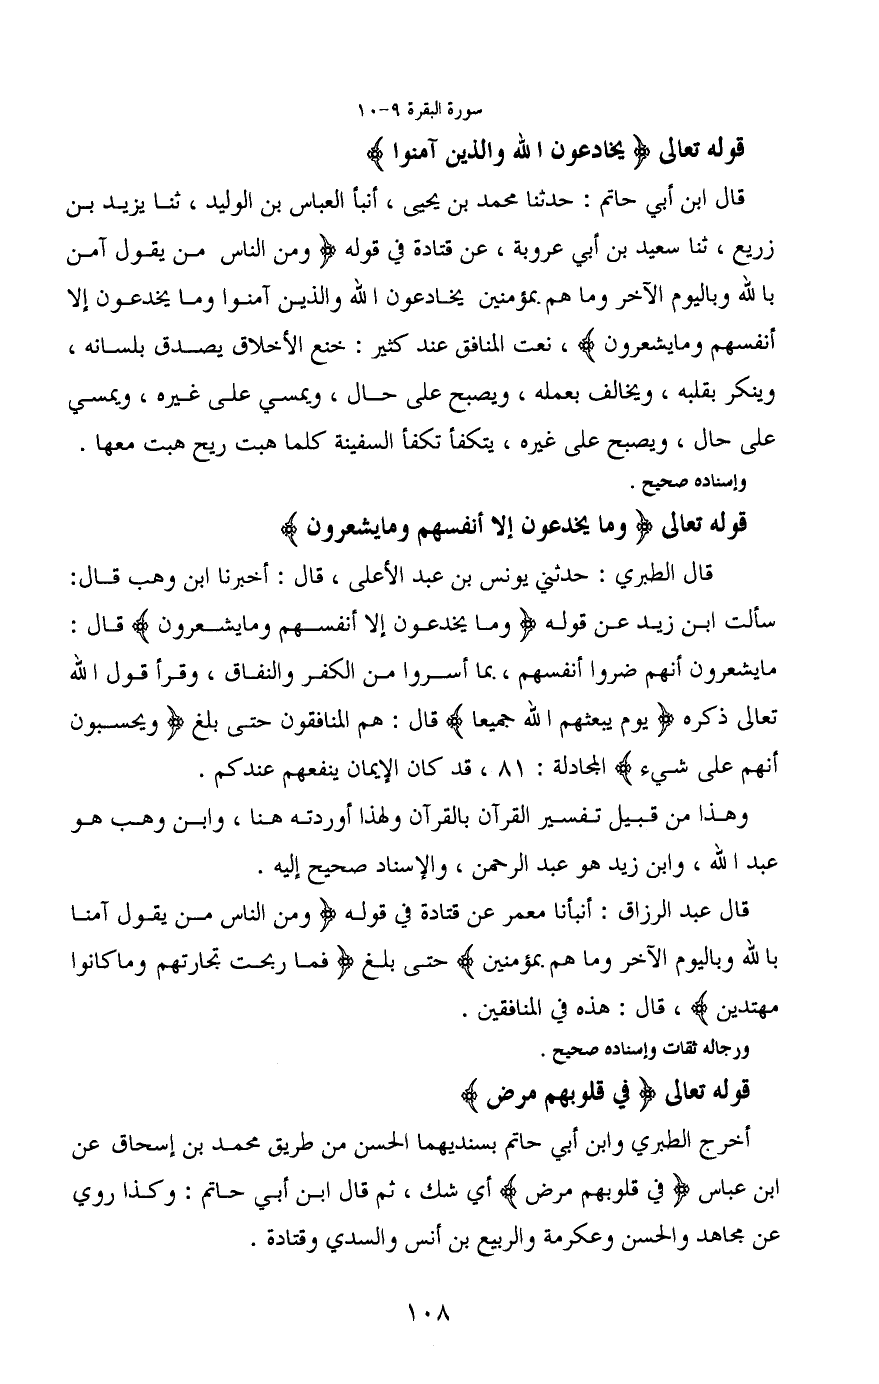 سورة البقرة ٩-١٠
قوله تعالى ﴿ يخادعون الله والذين آمنوا ﴾
قال ابن أبي حاتم : حدثنا محمد بن يحيى ، أنبأ العباس بن الوليد ، ثنا يزيد بن
زريع ، ثنا سعيد بن أبي عروبة ، عن قتادة في قوله ﴿ ومن الناس من يقول آمن
بالله وباليوم الآخر وما هم بمؤمنين يخادعون الله والذين آمنوا وما يخدعون إلا
أنفسهم ومايشعرون ﴾ ، نعت المنافق عند كثير : خنع الأخلاق يصدق بلسانه ،
وينكر بقلبه ، ويخالف بعمله ، ويصبح على حال ، ويمسي على غيره ، ويمسي
على حال ، ويصبح على غيره ، يتكفأ تكفأ السفينة كلما هبت ريح هبت معها .
وإسناده صحيح .
قوله تعالى ﴿ وما يخدعون إلا أنفسهم ومايشعرون ﴾
قال الطبري : حدثني يونس بن عبد الأعلى ، قال : أخبرنا ابن وهب قال:
سألت ابن زيد عن قوله ﴿ وما يخدعون إلا أنفسهم ومايشعرون ﴾ قال :
مايشعرون أنهم ضروا أنفسهم ، بما أسروا من الكفر والنفاق ، وقرأ قول الله
تعالى ذكره ﴿ يوم يبعثهم الله جميعا ﴾ قال : هم المنافقون حتى بلغ ﴿ ويحسبون
أنهم على شيء ﴾ المجادلة : ٨١ ، قد كان الإيمان ينفعهم عندكم .
وهذا من قبيل تفسير القرآن بالقرآن ولهذا أوردته هنا ، وابن وهب هو
عبد الله ، وابن زيد هو عبد الرحمن ، والإسناد صحيح إليه .
قال عبد الرزاق : أنبأنا معمر عن قتادة في قوله ﴿ ومن الناس من يقول آمنا
بالله وباليوم الآخر وما هم بمؤمنين ﴾ حتى بلغ ﴿ فما ربحت تجارتهم وماكانوا
مهتدين ﴾ ، قال : هذه في المنافقين .
ورجاله ثقات وإسناده صحيح .
قوله تعالى ﴿ في قلوبهم مرض ﴾
أخرج الطبري وابن أبي حاتم بسنديهما الحسن من طريق محمد بن إسحاق عن
ابن عباس ﴿ في قلوبهم مرض ﴾ أي شك ، ثم قال ابن أبي حاتم : وكذا روي
عن مجاهد والحسن وعكرمة والربيع بن أنس والسدي وقتادة .
١٠٨